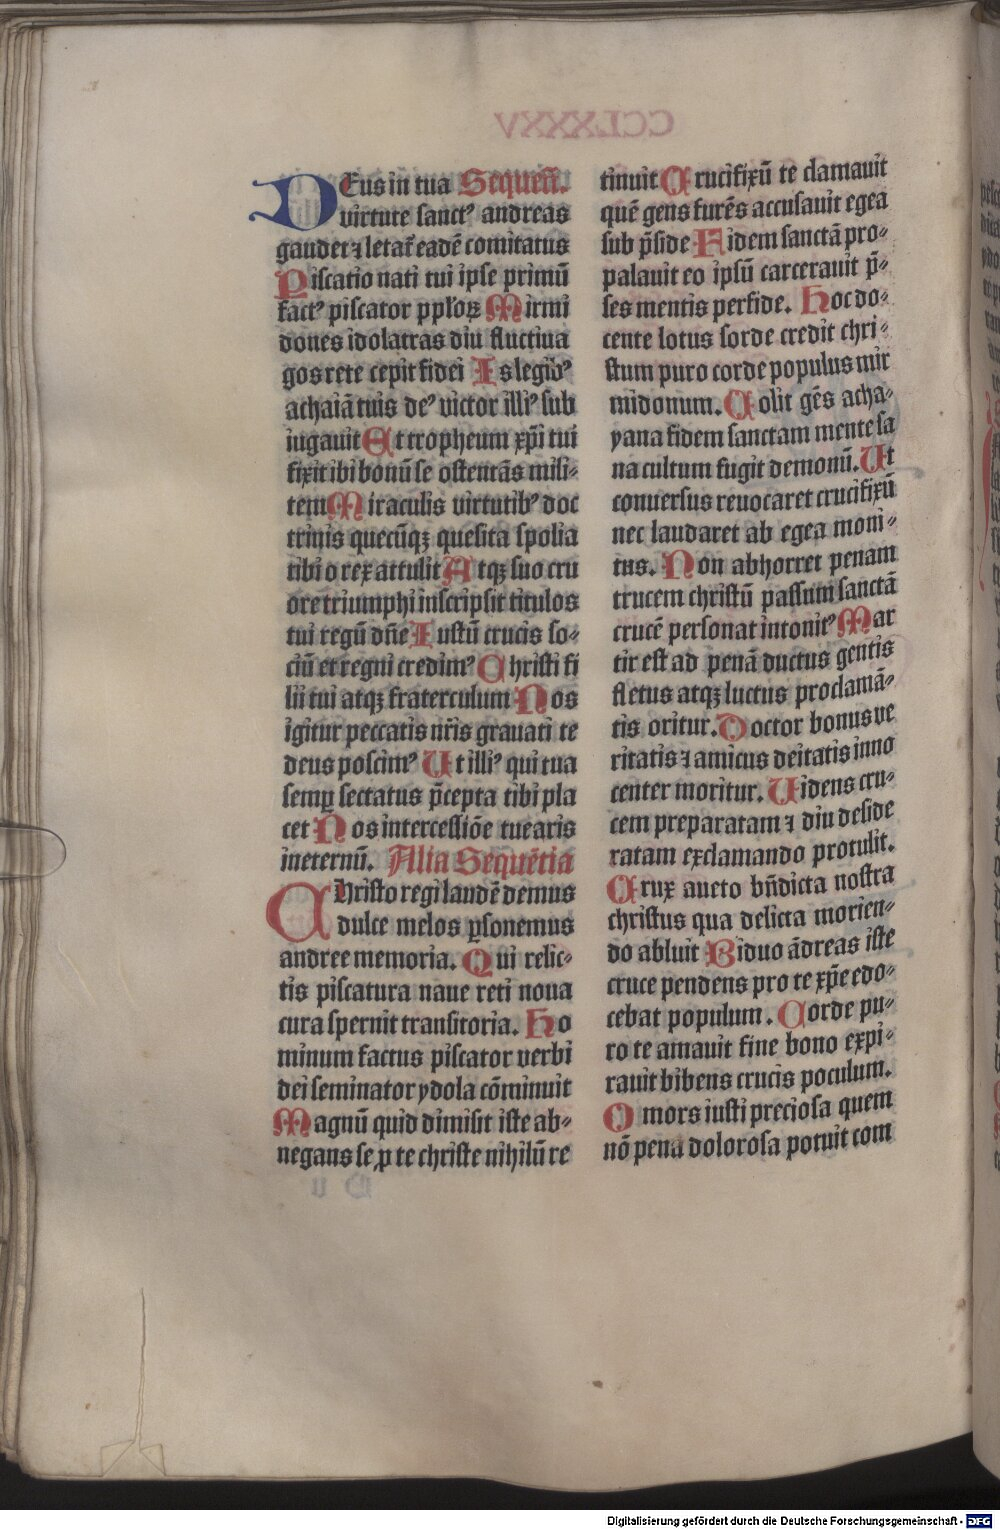 DEus in tua Sequen̄.
virtute sanctꝰ andreas
gaudet ⁊ letat̄ eadē comitatus
Piscatio nati tui ipse primū
factꝰ piscator pplōꝝ Mirmi
dones idolatras diu fluctiua
gos rete cepit fidei Is
achaiā tuis deꝰ victor illiꝰ sub
iugauit Et tropheum xp̄i tui
fixit ibi bonū se ostentās mili⸗
tem Miraculis virtutibꝰ doc
trinis quecūqꝫ quesita spolia
tibi o rex attulit Atqꝫ suo cru
ore triumphi inscripsit titulos
tui regū dn̄e Iustū crucis so⸗
ciū et regni credimꝰ Christi fi
lii tui atqꝫ fraterculum Nos
igitur peccatis nr̄is grauati te
deus poscimꝰ Ut illiꝰ qui tua
semꝑ sectatus p̄cepta tibi pla
cet Nos intercessiōe tuearis
in eternū. Alia Sequētia
CHristo regi laudē demus
dulce melos ꝑsonemus
andree memoria. Qui relic⸗
tis piscatura naue reti noua
cura spernit transitoria. Ho
minum factus piscator verbi
dei seminator ydola cōminuit
Magnū quid dimisit iste ab⸗
negans se ꝓ te christe nihilū re
tinuit Crucifixū te clamauit
quē gens furēs accusauit egea
sub p̄side Fidem sanctā pro⸗
palauit eo ipsū carcerauit p̄⸗
ses mentis perfide. Hoc do⸗
cente lotus sorde credit chri⸗
stum puro corde populus mir
midonum. Colit gēs acha⸗
yana fidem sanctam mente sa
na cultum fugit demonū. Ut
conuersus reuocaret crucifixū
nec laudaret ab egea moni⸗
tus. Non abhorret penam
trucem christū passum sanctā
crucē personat intonitꝰ Mar
tir est ad penā ductus gentis
fletus atqꝫ luctus proclamā⸗
tis oritur. Doctor bonus ve
ritatis ⁊ amicus deitatis inno
center moritur. Uidens cru⸗
cem preparatam ⁊ diu deside
ratam exclamando protulit.
Crux aueto bn̄dicta nostra
christus qua delicta morien⸗
do abluit Biduo ādreas iste
cruce pendens pro te xp̄e edo⸗
cebat populum. Corde pu⸗
ro te amauit fine bono expi⸗
rauit bibens crucis poculum.
O mors iusti preciosa quem
nō pena dolorosa potuit com
Digitalisierung gefördert durch die Deutsche Forschungsgemeinschaft - DFG